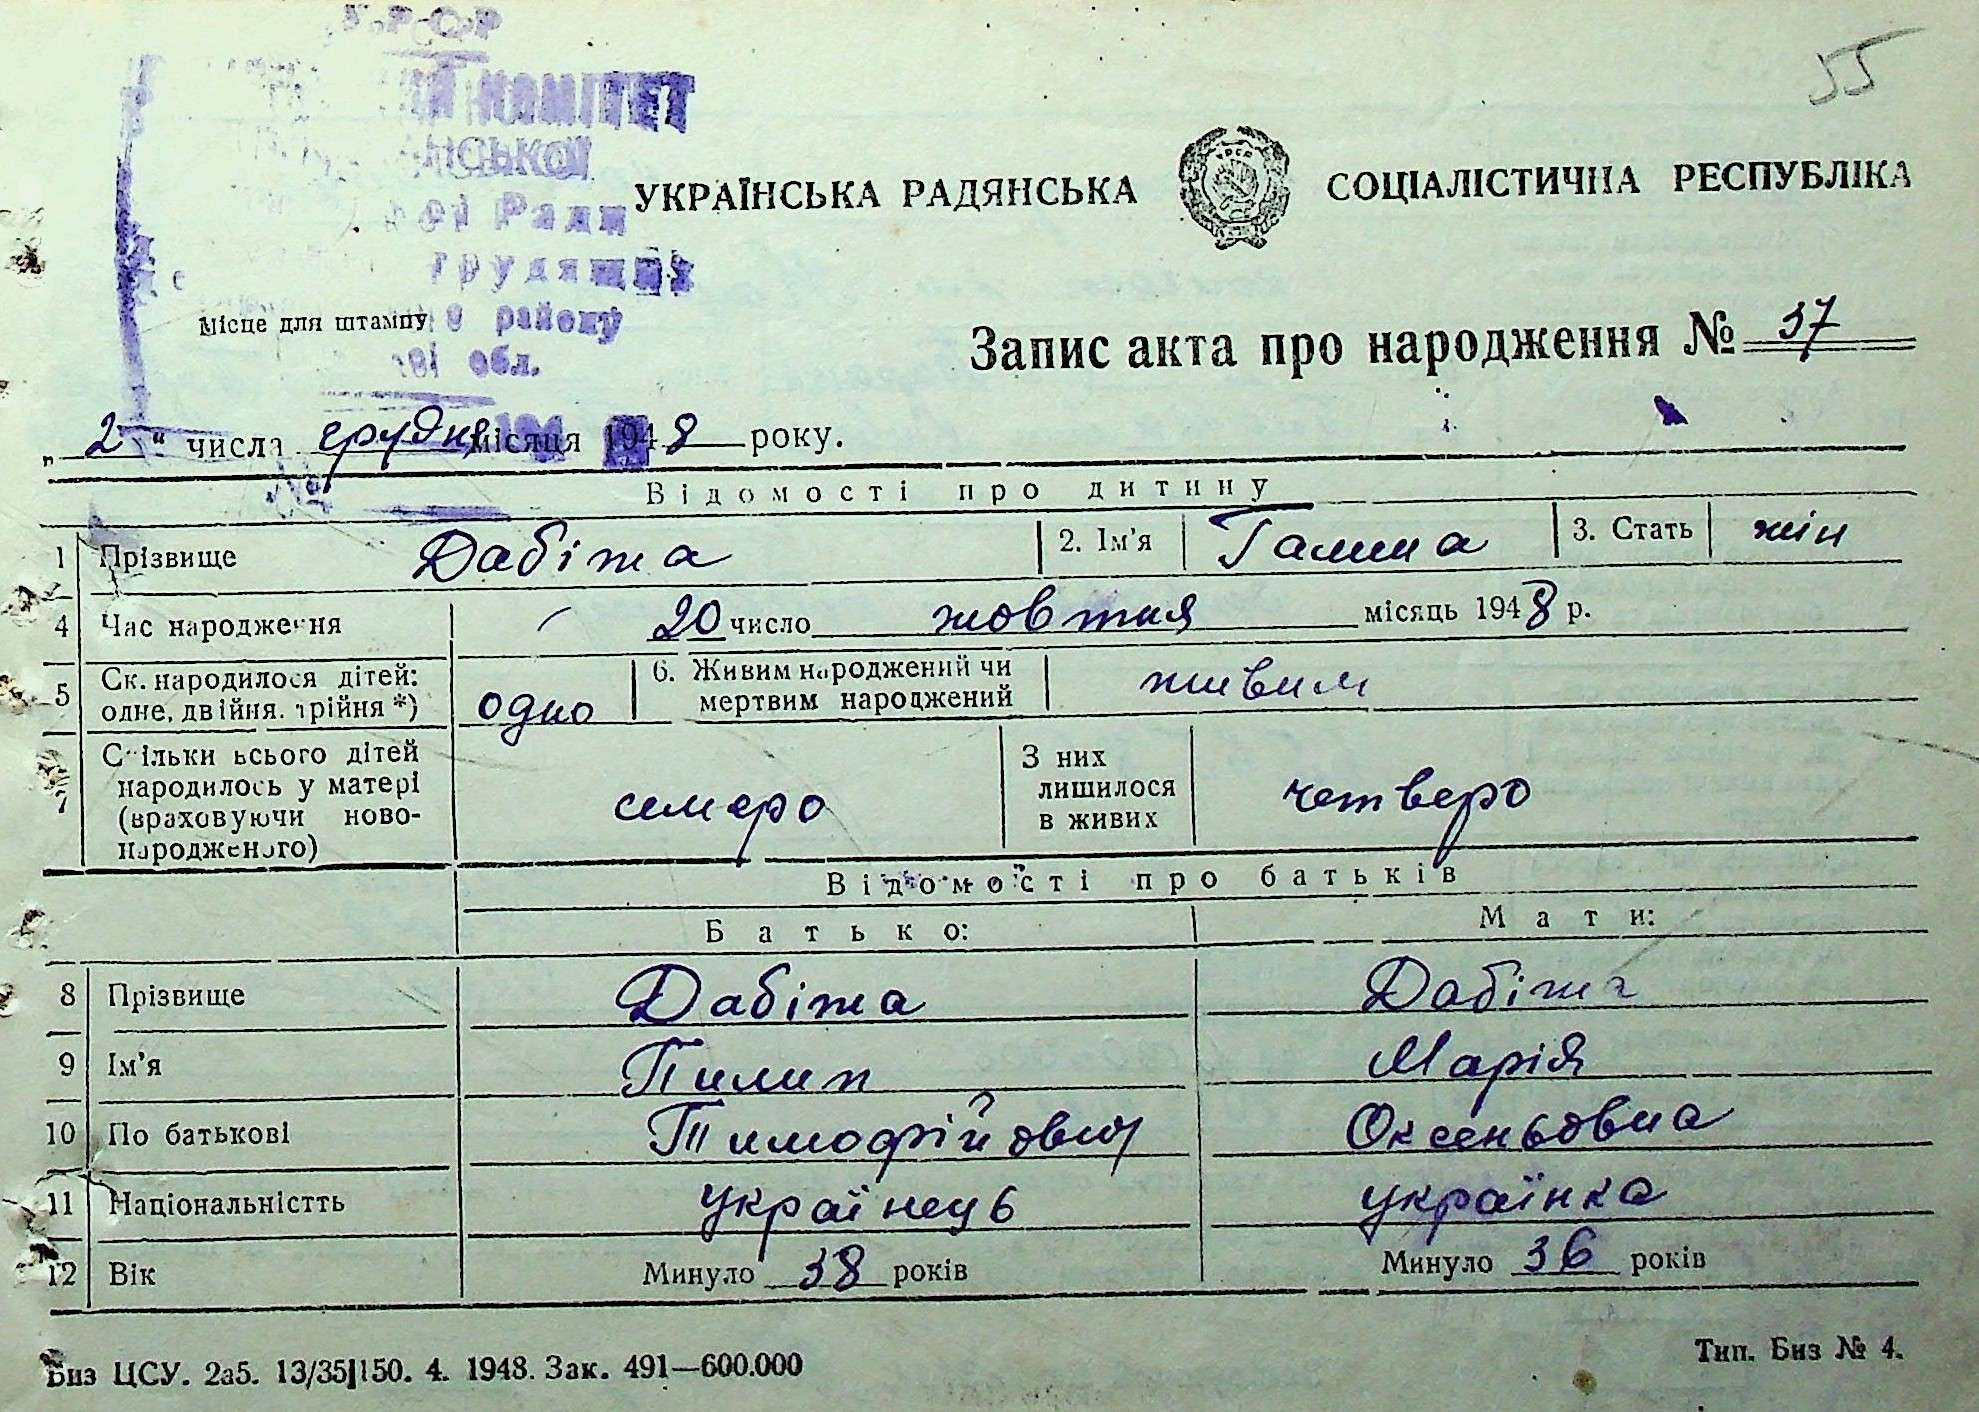 УРСР
КОМІТЕТ
Ради
трудящих
району
обл.
55
УКРАЇНСЬКА РАДЯНСЬКА СОЦІАЛІСТИЧНА РЕСПУБЛІКА
Місце для штампу
Запис акта про народження № 37
„ 2 “ числа грудня місяця 1948 року.
Відомості про дитину
1 Прізвище Дабіжа 2. Ім'я Галина 3. Стать жін
4 Час народження 20 число жовтня місяць 1948 р.
5 Ск. народилося дітей: одне, двійня, трійня *) одно 6. Живим народжений чи мертвим народжений живим
7 Скільки всього дітей народилось у матері (враховуючи ново-народженого) семеро З них лишилося в живих четверо
Відомості про батьків
Батько: Мати:
8 Прізвище Дабіжа Дабіжа
9 Ім'я Пилип Марія
10 По батькові Тимофійович Оксентьовна
11 Національністть українець українка
12 Вік Минуло 38 років Минуло 36 років
Биз ЦСУ. 2а5. 13/35|150. 4. 1948. Зак. 491—600.000
Тип. Биз № 4.